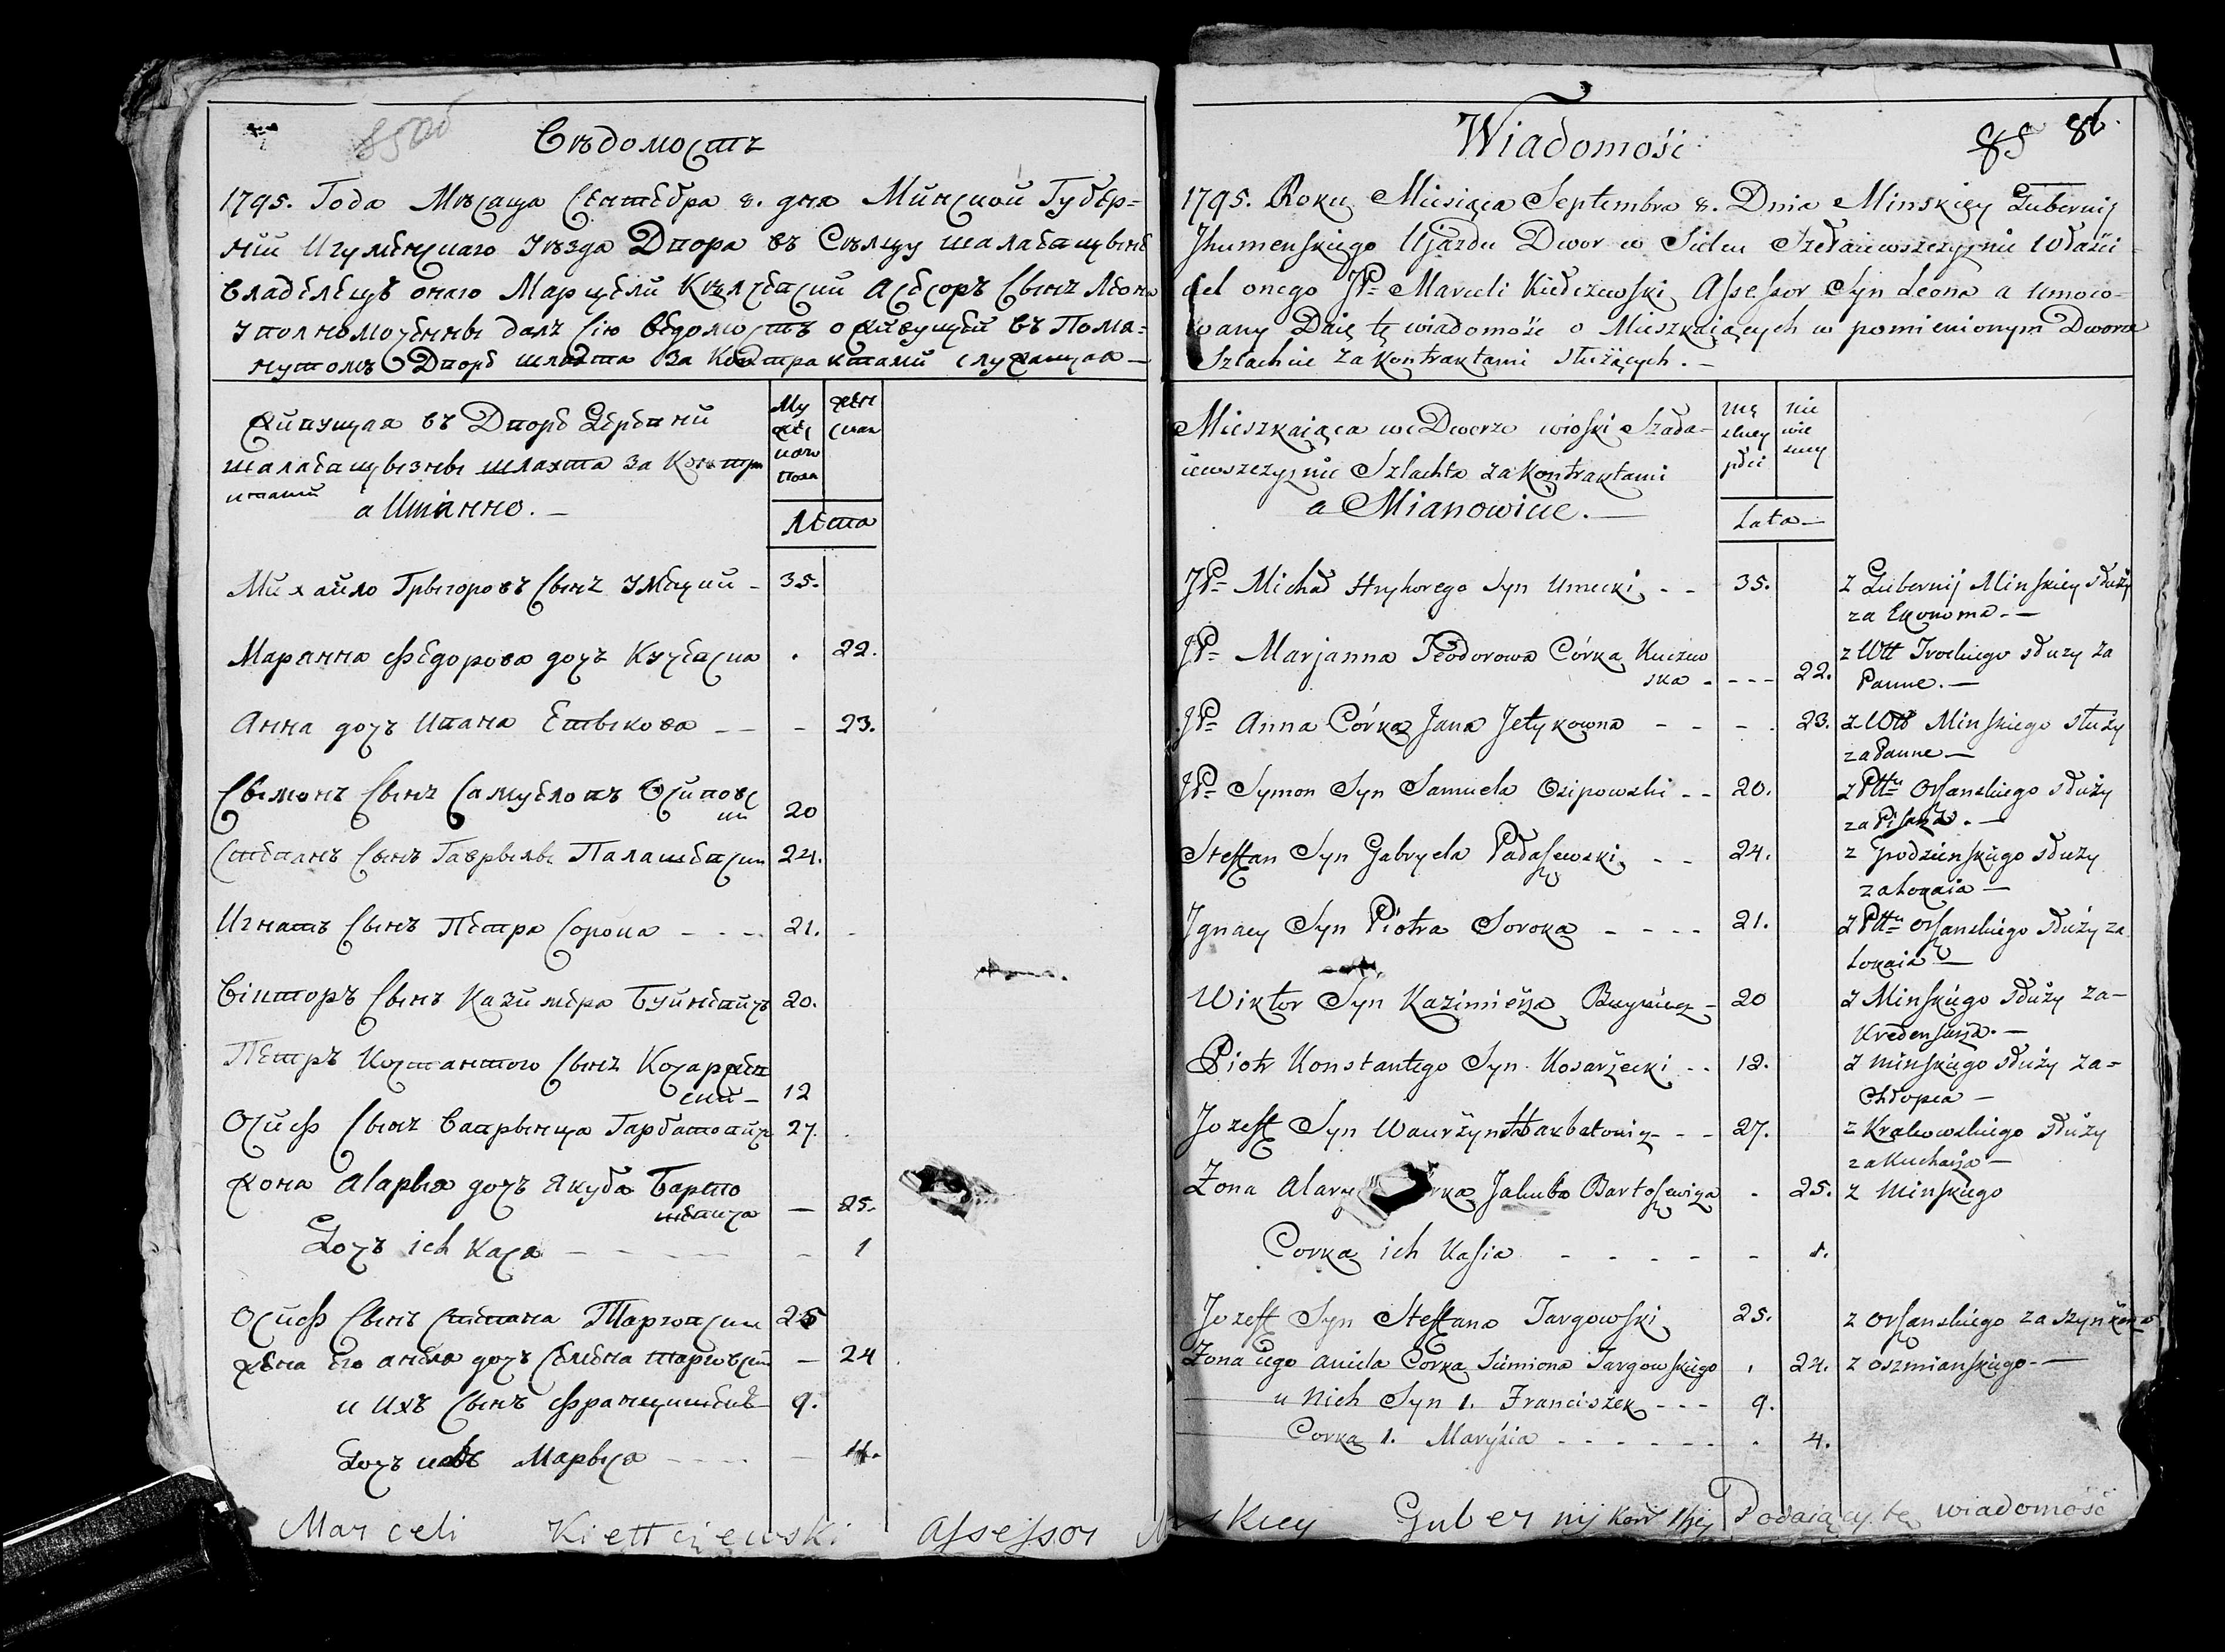 85об
Вѣдомость
1795. Года Мѣсаца Сентебра 8. дня Минской Губер=
ніи Игуменскаго Уѣзда Двора въ Сѣлцу
Владелецъ онаго Марцели Кѣлчевский Асесоръ Сынъ Леона
Уполномоченны далъ Сію вѣдомость о живущей въ Помя=
нутомъ Дворе шляхта За Контрактами служащая —
Живущая въ Дворе Деревни
шляхта за Контра
ктами
а Имянно. —
Му
жес
каго
Пола
жен
скаг
Лета
Михайло Грыгоровъ Сынъ Умецкий - 35.
Марянна Федорова дочъ Кучевска . 22.
Анна дочъ Ивана Етыкова — - 23.
Сымонъ Сынъ Самуеловъ Осиповс
ки 20
Степанъ Сынъ Гаврылы Палашевски 24.
Игнатъ Сынъ Петра Сорока - - - 21.
Вікторъ Сынъ Казимера Буйневичъ 20.
Петръ Костантого Сынъ Косаржев
ский - 12
Осифъ Сынъ Ваврынца Гарбатовичъ 27.
жона Аlарыя дочъ Якуба Барто
шевича — 25.
Дочъ ich Кася - - - - 1
Осифъ Сынъ Степана Тарговски 25
жена его анеля дочъ Семена Тарговски — 24
и Ихъ Сынъ Францишекъ 9.
Дочъ Марыся - - - - 4.
Marceli Kiełłczewski Assessor
Wiadomość
85 86.
1795. Roku Miesiąca Septembra 8. Dnia Minskiey Gubernij
Jhumenskiego Ujazdu Dwor w Sielcu Właści-
ciel onego JP= Marceli Kiełczewski Assessor Syn Leona a Umoco-
wany Daię tę wiadomość o Mieszkaiących w pomienionym Dworze
Szlachcie za Kontraktami służących. —
Mieszkaiąca we Dworze wioski Szała-
iewszczyznie Szlachta za Kontraktami
a Mianowicie. —
mę
skiey
płci
nie
wie
sciey
Lata —
JP= Michał Hryhorego Syn Umecki - - 35. z Gubernij Minskiey służy
za Ekonoma. —
JP= Marjanna Teodorowa Córka Kuczew
ska - - - - 22. z Wtt Trockiego służy za
Panne. —
JP= Anna Córka Jana Jetykowna - - - . 23. z Wtt Minskiego służy
za Panne —
JP= Symon Syn Samuela Osipowski - - 20. z Pttu Orszanskiego służy
za Pisarza. —
Steffan Syn Gabryela Pałaszewski - - 24. z Grodzienskiego służy
za Lokaia —
Jgnacy Syn Piotra Soroka - - - - 21. z Pttu Orszanskiego służy za
Lokaia —
Wiktor Syn Kazimierza Buyniewicz - 20 z Minskiego służy za —
Kredensarza. —
Piotr Konstantego Syn Kosarzecki - - 12. z minskiego służy za =
Chłopca —
Jozeff Syn Wawrzynca Harbatowicz - - 27. z Krakowskiego służy
za Kucharza —
Żona Alary Jakuba Bartoszewicza . 25. z Minskiego
Corka ich Kasia - - - - - 1.
Jozeff Syn Steffana Targowski 25. z Orszanskiego za Szynkarza
Żona iego aniela Corka Simiona Targowskiego . 24. z oszmianskiego. —
u nich Syn 1. Franciszek - - - 9.
Corka 1. Marysia - - - - - - . 4.
skiey Gubernij Podaiący tę wiadomość